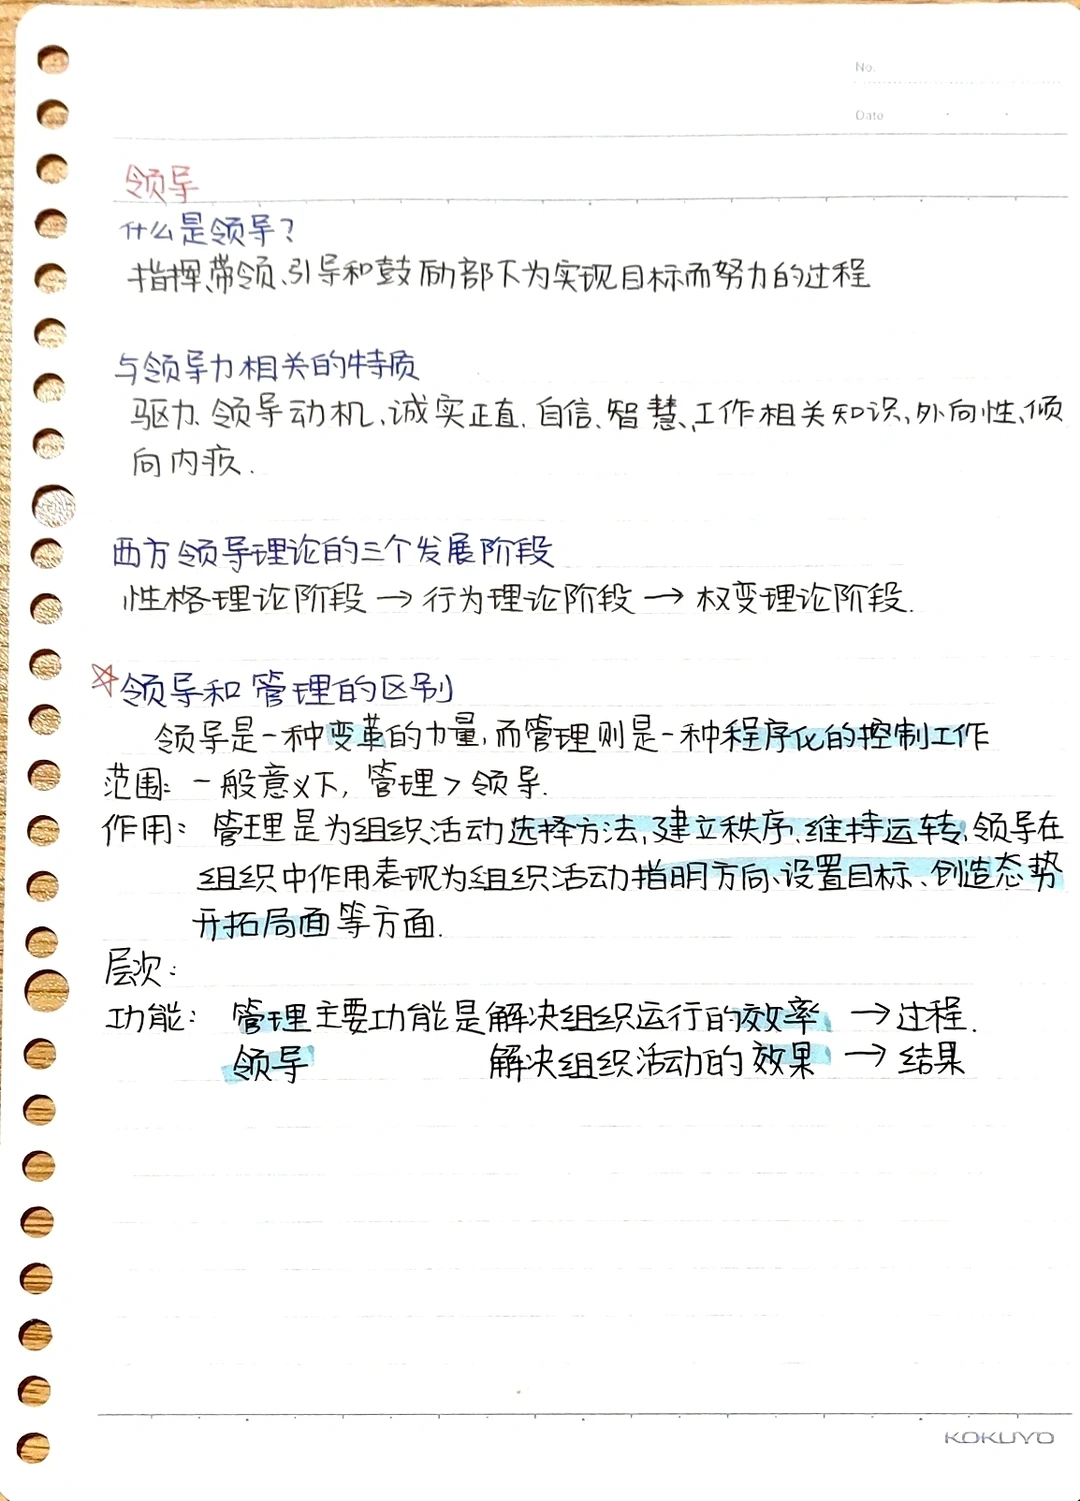 No.
Date
领导
什么是领导?
指挥、带领、引导和鼓励部下为实现目标而努力的过程
与领导力相关的特质
驱力、领导动机、诚实正直、自信、智慧、工作相关知识、外向性、倾
向内疚.
西方领导理论的三个发展阶段
性格理论阶段→行为理论阶段→权变理论阶段.
☆领导和管理的区别
领导是一种变革的力量,而管理则是一种程序化的控制工作
范围: 一般意义下, 管理>领导.
作用: 管理是为组织活动选择方法、建立秩序、维持运转,领导在
组织中作用表现为组织活动指明方向、设置目标、创造态势
开拓局面等方面.
层次:
功能: 管理主要功能是解决组织运行的效率 →过程.
领导 解决组织活动的效果 →结果
KOKUYO